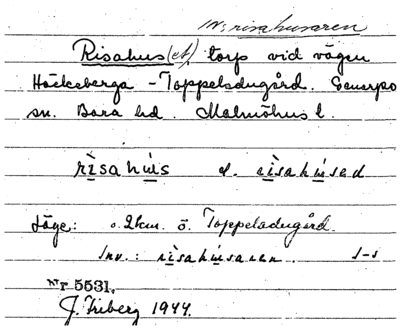 risahusaren
Risahus(et) torp vid vägen
Häckeberga – Toppeladugård. Genarps
sn. Bara hd. Malmöhus l.
rìsahùs el. rìsahùsəd
Läge: c. 2 km. ö. Toppeladugård.
Inv.: rìsahùsaren. s-s
Nr 5531.
J. Friberg 1944.